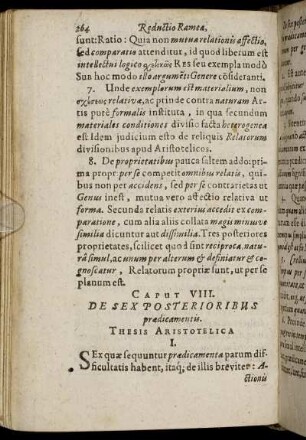 264 Reductio Ramea,
sunt: Ratio: Quia non mutua relationis affectio,
sed comparatio attenditur, id quod liberum est
intellectus logico Res seu exempla modò
Sun hoc modo illo argumēti Genere cōsideranti.
7. Unde exemplorum est materialium, non
relativa, ac prinde contra naturam Ar-
tis purè formalis instituta, in qua secundum
materiales conditiones divisio facta heterogenea
est Idem judicium esto de reliquis Relatorum
divisionibus apud Aristotelicos.
8. De proprietatibus pauca saltem addo: pri-
ma propr: per se competit omnibus relatis, qui-
bus non per accidens, sed per se contrarietas ut
Genus inest, mutua vero affectio relativa ut
forma. Secunda relatis exterius accedit ex com-
paratione, cum alia aliis collata magis minusve
similia dicuntur aut dissimilia. Tres posteriores
proprietates, scilicet quod sint reciproca, natu-
râ simul, ac unum per alterum & definiatur & co-
gnoscatur, Relatorum propriæ sunt, ut per se
planum est.
CAPUT VIII.
DE SEX POSTERIORIBUS
prædicamentis.
THESIS ARISTOTELICA
I.
SEx quæ sequuntur prædicamenta parum dif-
ficultatis habent, itaq; de illis breviter: A-
ctionis